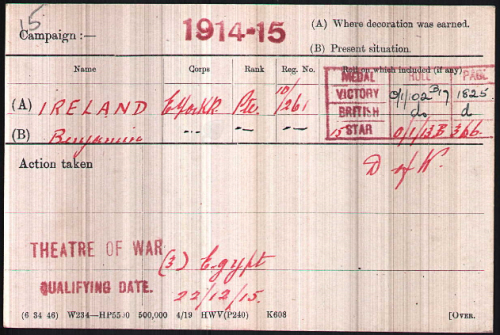 15
Campaign :— 1914-15 (A) Where decoration was earned.
(B) Present situation.
Name Corps Rank Reg. No. Roll on which included (if any)
MEDAL ROLL PAGE
(A) IRELAND E York R Pte. 10/261 VICTORY O/1/102 B17 1825
(B) Benjamin -"- -"- BRITISH do. d
15 STAR O/1/13B 366
Action taken D of W.
THEATRE OF WAR (3) Egypt
QUALIFYING DATE. 22/12/15.
(6 34 46) W234—HP5590 500,000 4/19 HWV(P240) K608 [OVER.